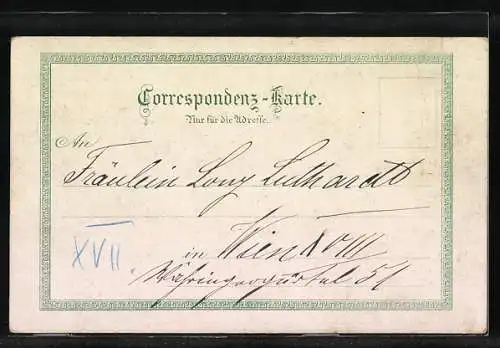 Correspondenz-Karte.
Nur für die Adresse.
An
Fräulein Lony
in Wien XVIII
Währingergürtel 51
XVII